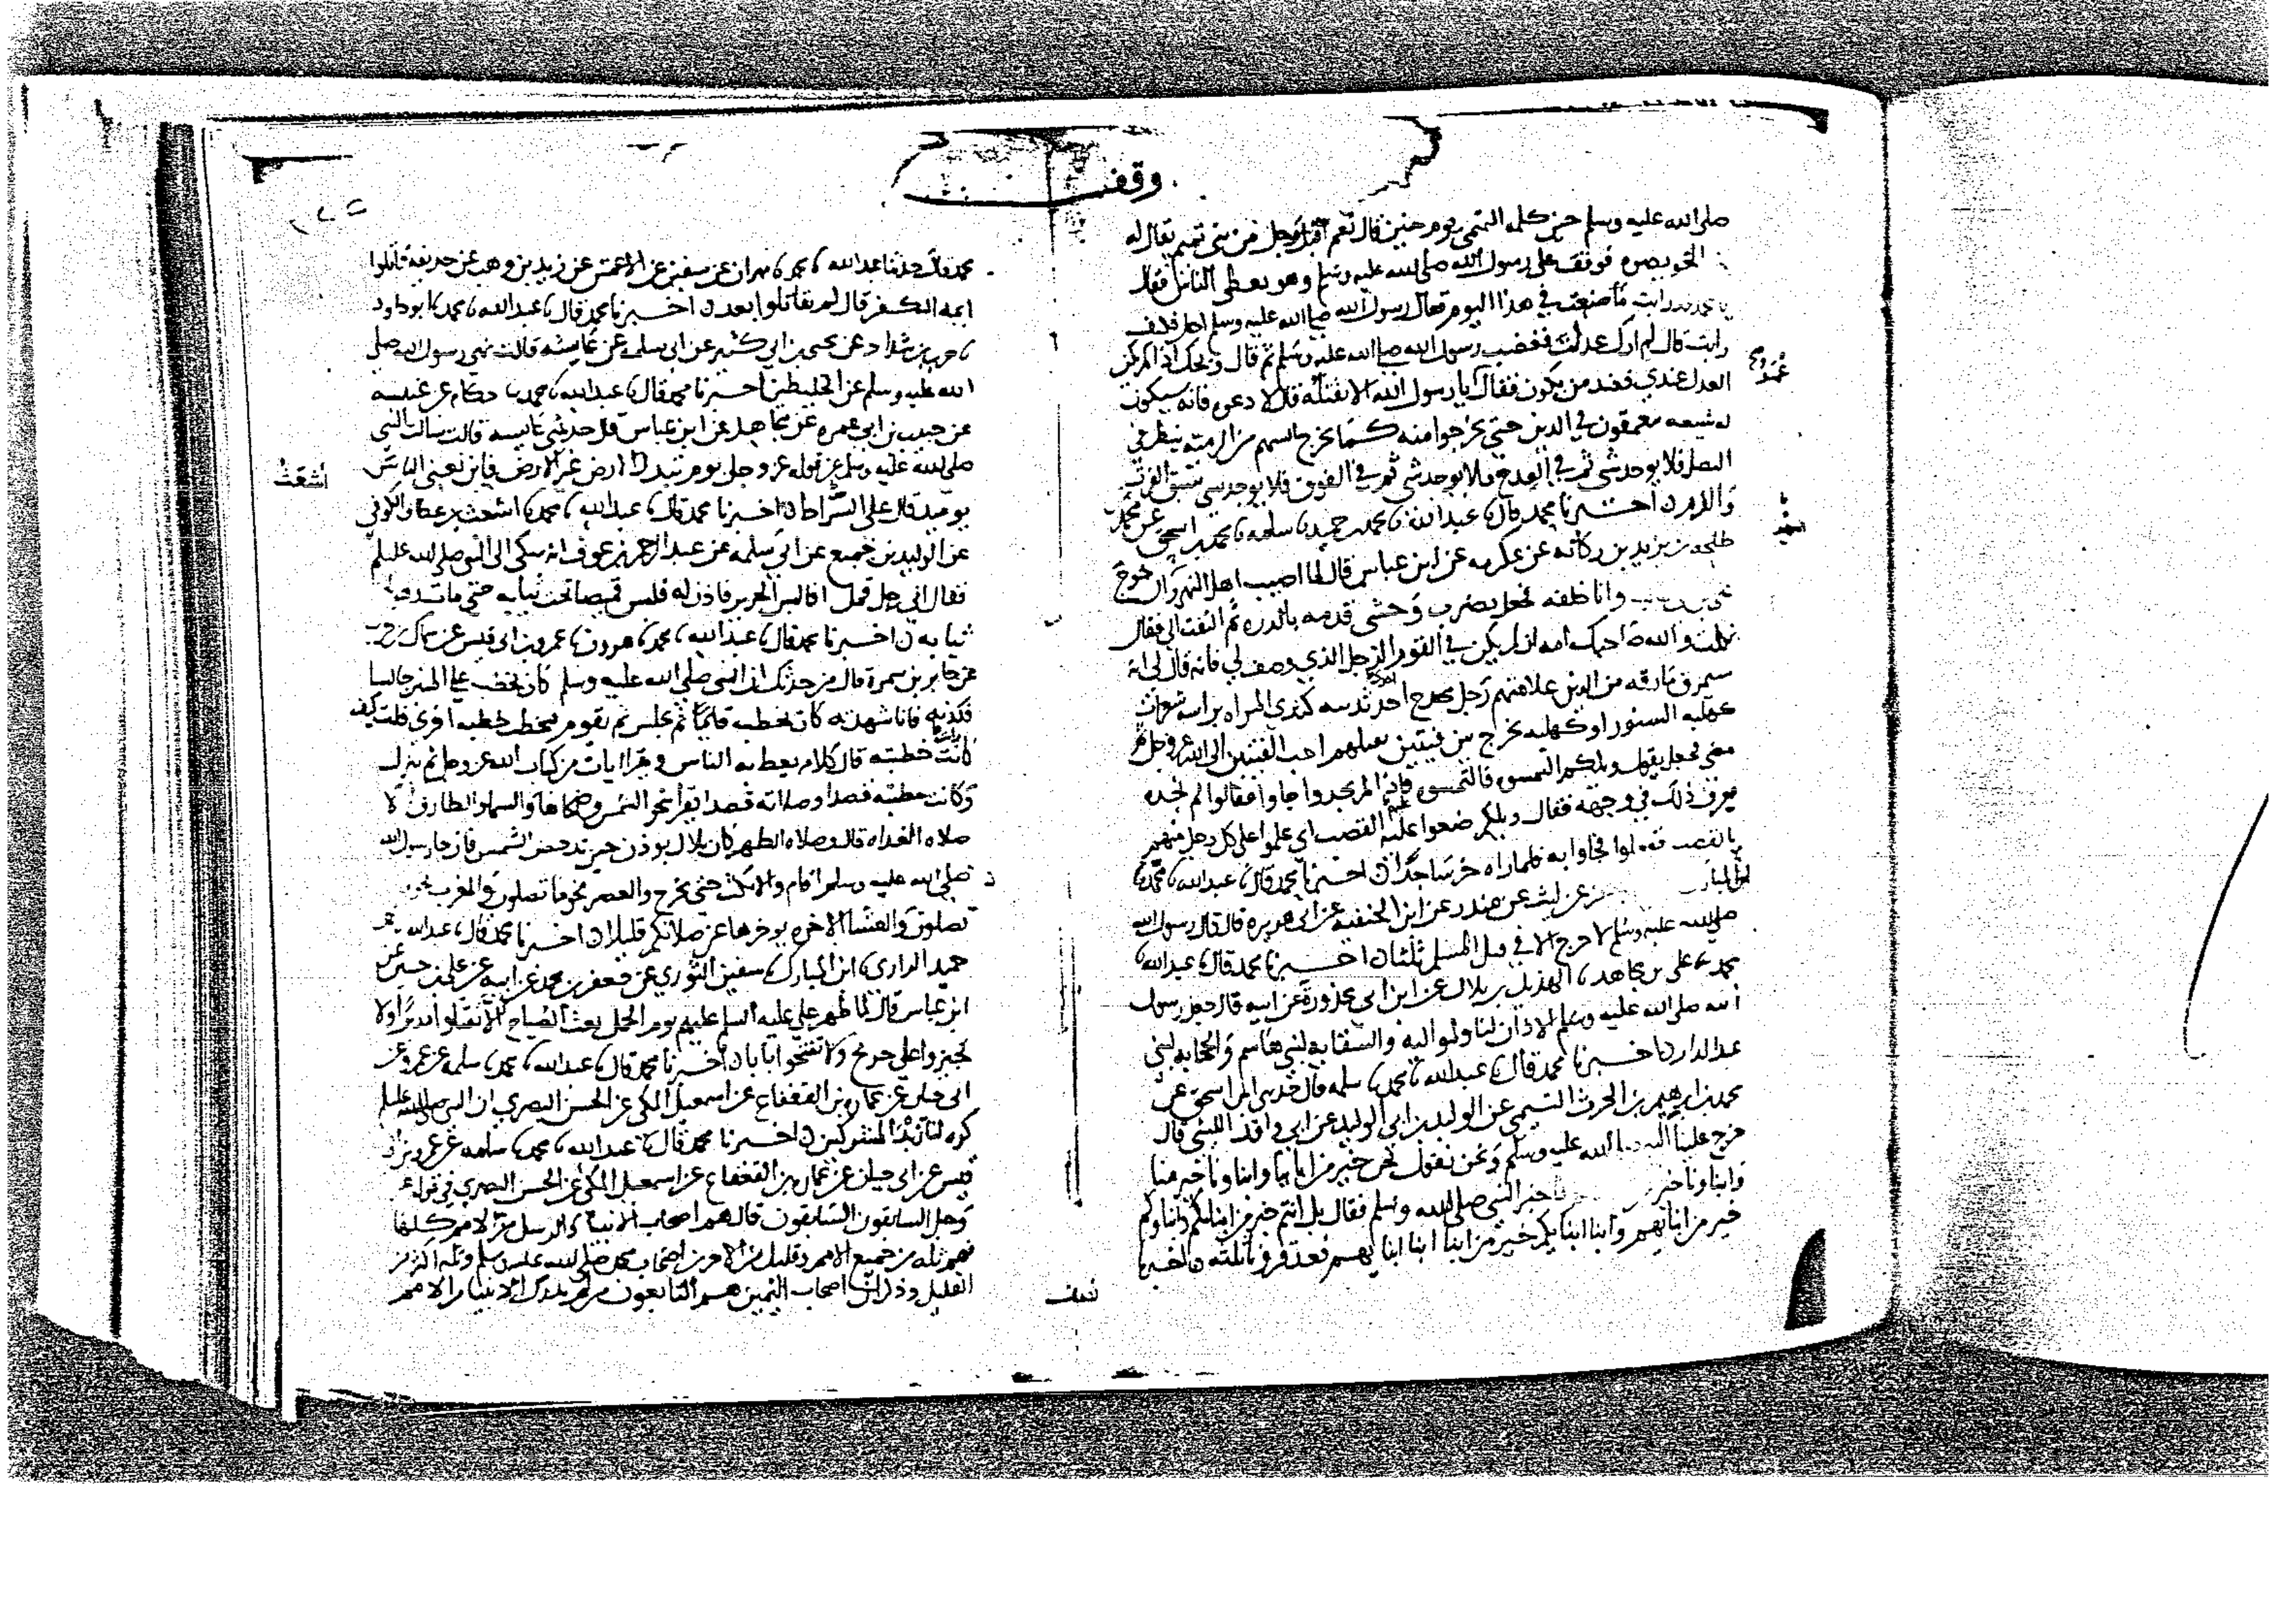 وقف
صلى الله عليه وسلم حين كلمه التميمي يوم حنين قال نعم اقبل رجل من بني تميم يقال له
الخويصره فوقف على رسول الله صلى الله عليه وسلم وهو يعطي الناس فقال
رايت ما صنعت في هذا اليوم فقال رسول الله صلى الله عليه وسلم اجل فكيف
رايت قال لم ارك عدلت فغضب رسول الله صلى الله عليه وسلم ثم قال ويحك اذا لم يكن
العدل عندي فعند من يكون فقال يا رسول الله الا نقتله قال لا دعوه فانه سيكون
له شيعه يتعمقون في الدين حتى يخرجوا منه كما يخرج السهم من الرميه ينظر في
النصل فلا يوجد شي ثم في القدح فلا يوجد شي ثم في الفوق فلا يوجد شي سبق الفرث
والدم ن اخبرنا محمد قال نا عبد الله نا محمد بن حميد نا سلمه نا محمد بن اسحق عن محمد
طلحه بن يزيد بن ركانه عن عكرمه عن ابن عباس قال لما اصيب اهل النهروان خرج
وانا خلفه فجعل يضرب وحشي قدمه بالدره ثم التفت الي فقال
في القوم الرجل الذي وصف لي فانه قال لي انه
سيمرق مارقه من الدين علامتهم رجل مخدج احد ثدييه كثدي المراه براسه شعرات
السنور او كهلبه يخرج بين فيتين يقتلهم احب الفئتين الى الله عز وجل
مضى فجعل يقول ويلكم التمسوه فالتمسوه فاذا المر يجدوا جاوا فقالوا لم نجده
فعرف ذلك في وجهه فقال ويلكم ضعوا عليه القصب اي علموا على كل رجل منهم
بالقصب فجاوا به فلما راه خر ساجدا ن اخبرنا محمد قال نا عبد الله نا محمد نا
ابن المبارك عن ليث عن منذر عن ابن الحنفيه عن ابي هريره قال قال رسول الله
صلى الله عليه وسلم لا حرج الا في قتل المسلم ثلثا ن اخبرنا محمد قال نا عبد الله نا
محمد نا علي بن مجاهد نا الهذيل بن بلال عن ابن ابي محذورة عن ابيه قال جعل رسول
الله صلى الله عليه وسلم الاذان لنا ولموالينا والسقايه لبني هاشم والحجابه لبني
عبد الدار ن اخبرنا محمد قال نا عبد الله نا محمد نا سلمه قال حدثني ابن اسحق عن
محمد بن ابرهيم بن الحرث التيمي عن الوليد بن ابي الوليد عن ابي واقد الليثي قال
خرج علينا النبي صلى الله عليه وسلم ونحن نقول نحن خير من ابائنا وابناونا خير منا
وابناونا خير فاخبر النبي صلى الله وسلم فقال بل انتم خير من ابنائكم وابناوكم
خير من ابنائهم وابنا ابنايكم خير من ابنا ابنا ابنايهم فعد قرونا ثلثه ن اخبرنا
محمد قال حدثنا عبد الله نا محمد نا مهران عن سفين عن الاعمش عن زيد بن وهب عن حذيفه قاتلوا
ايمه الكفر قال لم يقاتلوا بعد ن اخبرنا محمد قال نا عبد الله نا محمد نا ابو داود
نا حرب بن شداد عن يحيى بن ابي كثير عن ابي سلمه عن عايشه قالت نهى رسول الله صلى
الله عليه وسلم عن الخليطين اخبرنا محمد قال نا عبد الله نا محمد نا حكام عن عنبسه
عن حبيب بن ابي عمره عن مجاهد عن ابن عباس قال حدثتني عايشه قالت سالت النبي
صلى الله عليه وسلم عن قوله عز وجل يوم تبدل الارض غير الارض فاين يعني الناس
يوميذ قال على السراط ن اخبرنا محمد قال نا عبد الله نا محمد نا اشعث بن عطاف الكوفي
اشعث
عن الوليد بن جميع عن ابي سلمه عن عبد الرحمن بن عوف انه شكى الى النبي صلى الله عليه وسلم
فقال اني رجل قمل افالبس الحرير فاذن له فلبس قميصا تحت ثيابه حتى ما
ثيابه ن اخبرنا محمد قال نا عبد الله نا محمد نا هرون نا عمرو بن ابي قيس عن سماك بن حرب
عن جابر بن سمرة قال من حدثك ان النبي صلى الله عليه وسلم كان يخطب على المنبر جالسا
فكذبه فانا شهدته كان يخطب قايما ثم يجلس ثم يقوم فيخطب خطبه اخرى قلت كيف
كانت خطبته قال كلام يعظ به الناس ويقرا ايات من كتاب الله عز وجل ثم ينزل
وكانت خطبته قصدا وصلاته قصدا يقرا نحو الشمس وضحاها والسما والطارق الا
صلاه الغداه قال وصلاه الظهر كان بلال يوذن حين تدحض الشمس فان جا رسول الله
صلى الله عليه وسلم اقام والا مكث حتى يخرج والعصر نحو ما تصلون والمغرب نحو
تصلون والعشا الاخره يوخرها عن صلاتكم قليلا ن اخبرنا محمد قال نا عبد الله
حميد الرازي نا ابن المبارك نا سفين الثوري عن جعفر بن محمد عن ابيه عن علي بن حسين عن
ابن عباس قال لما ظهر علي عليه السلم عليهم يوم الجمل بعث الصياح الا تقتلوا مدبرا ولا
تجيزوا على جريح ولا تفتحوا بابا ن اخبرنا محمد قال نا عبد الله نا محمد نا سلمه عن عمرو عن
ابي حيان عن عمار بن القعقاع عن اسمعيل المكي عن الحسن البصري ان النبي صلى الله عليه
كره لنا زبد المشركين ن اخبرنا محمد قال نا عبد الله نا محمد نا سلمه عن عمرو بن
قيس عن ابي حيان عن عمار بن القعقاع عن اسمعيل المكي عن الحسن البصري في قوله عز
وجل السابقون السابقون قال هم اصحاب الانبيا والرسل من الامم كلها
فهم ثله من جميع الامم وقليل من الاخرين اصحاب محمد صلى الله عليه وسلم وثله اكثر من
القليل وذكر ان اصحاب اليمين هم التابعون من لم يدرك الانبيا من الامم